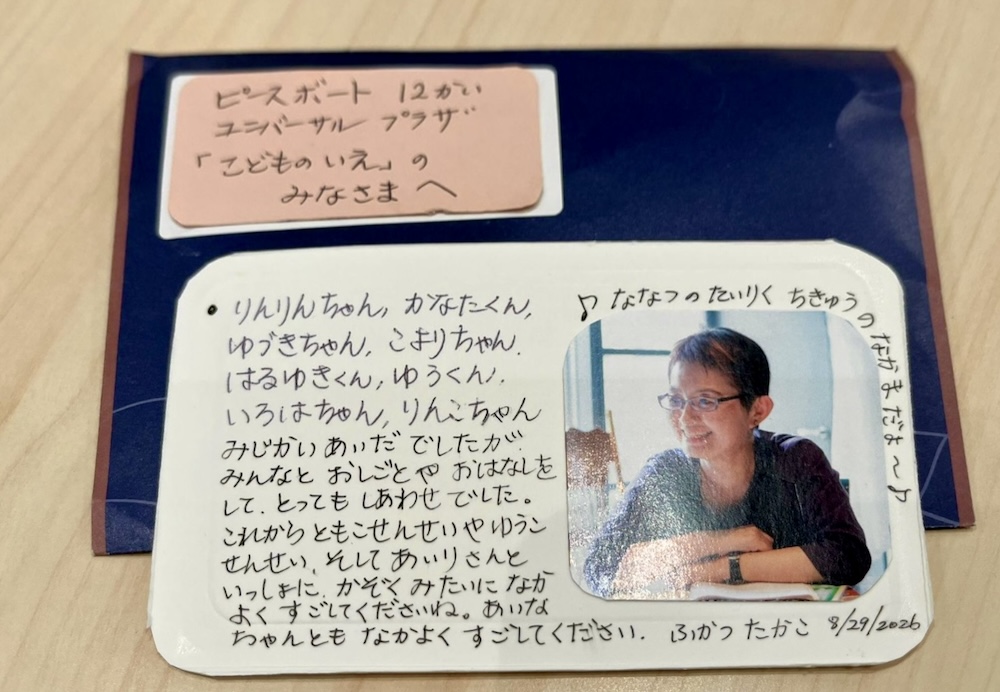 ピースボート 12かい
ユニバーサル プラザ
「こどものいえ」の
みなさま へ
りんりんちゃん, かなたくん,
ゆづきちゃん, こまりちゃん.
はるゆきくん, ゆうくん.
いろはちゃん, りんこちゃん
みじかい あいだ でしたが.
みんなと おしごとや おはなしを
して. とっても しあわせ でした。
これから ともこせんせいや ゆうこ
せんせい, そして あいりさんと
いっしょに. かぞく みたいに なか
よく すごしてくださいね。あいな
ちゃんとも なかよく すごしてください. ふかつ たかこ 8/29/2026
♪ ななつの たいりく ちきゅうの なかまだよ〜♪